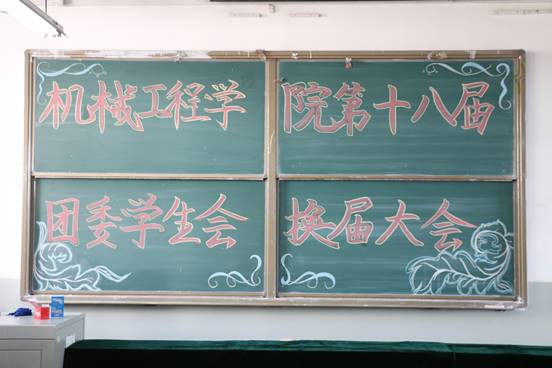 机械工程学院第十八届
团委学生会换届大会